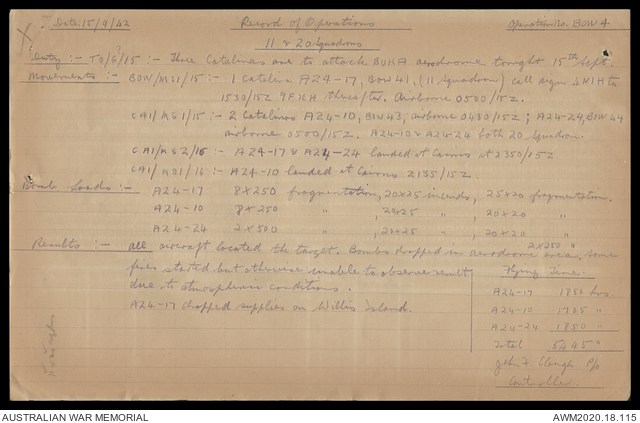 Date: 15/9/42 Record of Operations Operation No. BOW 4
11 & 20 Squadrons
Duty :- TO/G/15 :- Three Catalinas are to attack BUKA aerodrome tonight 15th Sept.
Movements :- BOW/MS1/15 :- 1 Catalina A24-17, BOW 41, (11 Squadron) call sign
1530/15Z thereafter. Airborne 0500/15Z.
CA1/MS1/15 :- 2 Catalinas A24-10, BOW 43, airborne 0430/15Z; A24-24, BOW 44
airborne 0500/15Z. A24-10 & A24-24 both 20 Squadron.
CA1/MS2/16 :- A24-17 & A24-24 landed at Cairns at 2350/15Z.
CA1/MS1/16 :- A24-10 landed at Cairns 2135/15Z.
Bomb Loads :- A24-17 8x250 fragmentation, 20x25 incends, 25x20 fragmentation.
A24-10 8x250 " , 20x25 " , 20x20 "
A24-24 2x500 " , 20x25 " , 20x20 "
2x250 "
Results :- all aircraft located the target. Bombs dropped in aerodrome area, some
fires started but otherwise unable to observe result
due to atmospheric conditions.
A24-17 dropped supplies on Willis Island.
Flying Time.
A24-17 1850 hrs.
A24-10 1705 "
A24-24 1850 "
Total 5445 "
John F. Clough P/O
Controller.
AUSTRALIAN WAR MEMORIAL AWM2020.18.115